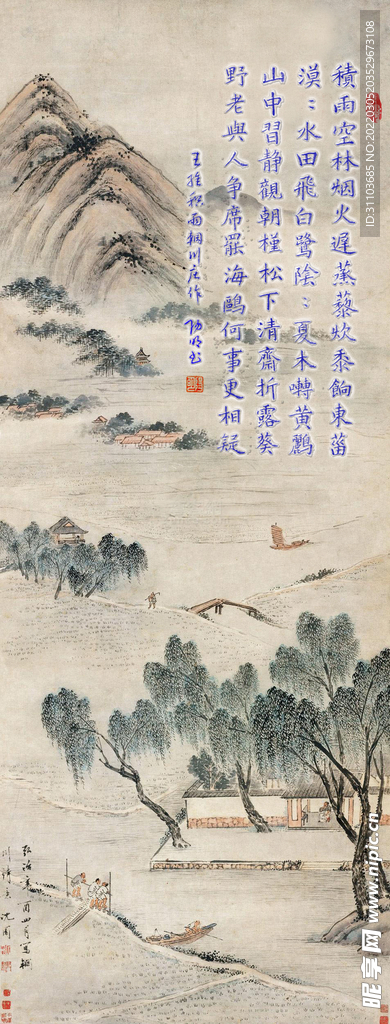 積雨空林烟火遲蒸藜炊黍餉東菑
漠〻水田飛白鷺陰〻夏木囀黄鸝
山中習静觀朝槿松下清齋折露葵
野老與人争席罷海鷗何事更相疑
王維積雨輞川庄作
弘治辛酉四月寫輞
川詩意 沈周
ID:31103685 NO:20220305203529673108
昵享网 www.nipic.cn